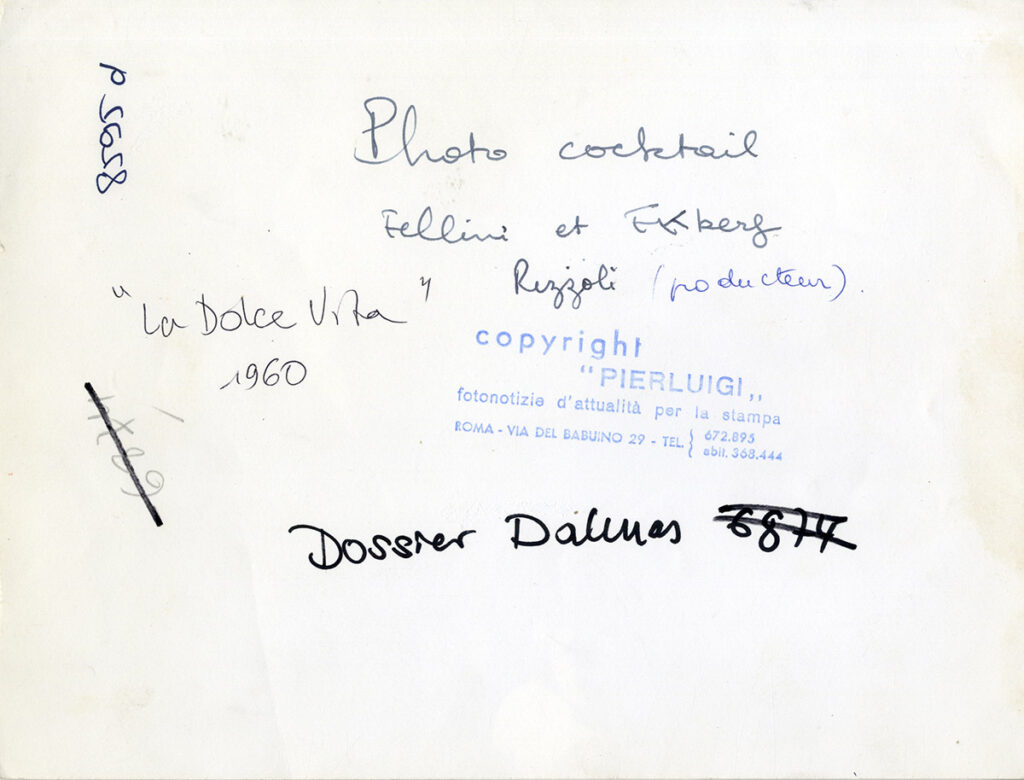 P 5658
Photo cocktail
Fellini et Ekberg
Rizzoli (producteur).
"La Dolce Vita"
1960
copyright
"PIERLUIGI„
fotonotizie d'attualità per la stampa
ROMA - VIA DEL BABUINO 29 - TEL. { 672.895
abit. 368.444
Dossier Dalmas 6874